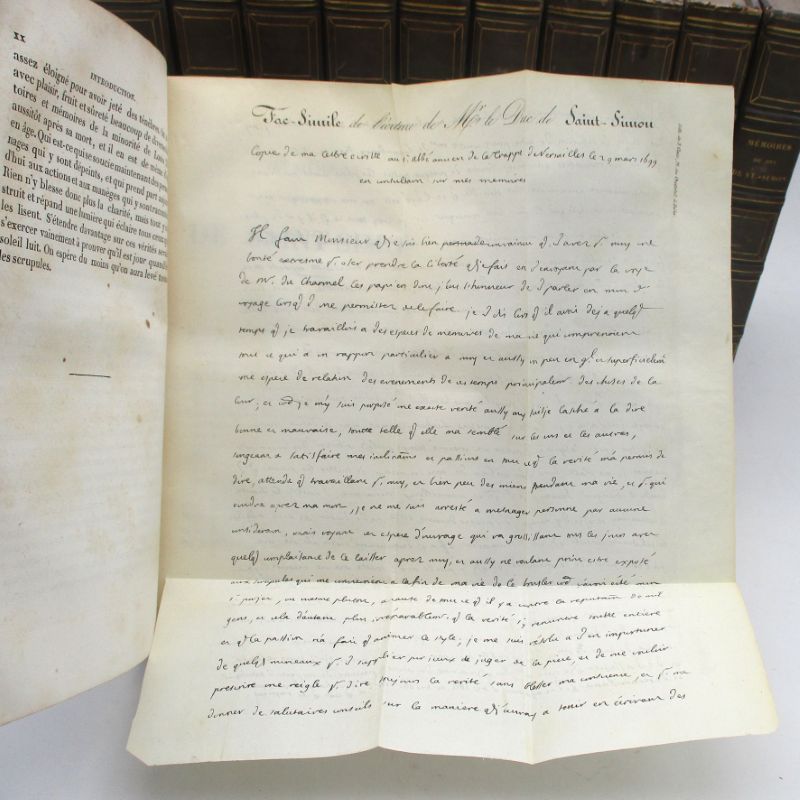 XX
INTRODUCTION.
assez éloigné pour avoir jeté des ténèbres
avec plaisir, fruit et sûreté beaucoup de divers
toires et mémoires de la minorité de Louis
aussitôt après sa mort, et il en est de même
en âge. Qui est-ce qui se soucie maintenant des
nages qui y sont dépeints, et qui prend part aujour
d'hui aux actions et aux manèges qui y sont
Rien n'y blesse donc plus la charité, mais tout y
struit et répand une lumière qui éclaire tous ceux
les lisent. S'étendre davantage sur ces vérités serait
s'exercer vainement à prouver qu'il est jour quand
soleil luit. On espère du moins qu'on aura levé tous
les scrupules.
Fac-Simile de l'écriture de Mr le Duc de Saint-Simon
Copie de ma lettre écritte au abbé ancien de la Trappe de Versailles le 29 mars 1699
en consultation sur mes memoires
Il faut Monsieur q je sois bien convaincu q v
bonté extreme p. oser prendre la liberté q j'ai fait en envoyant par la voye
de Mr. du Charmel les papiers dont j'eus l'honneur de parler en mon
voyage lorsq me permistes de le faire. je dis lors q il avoit desja quelq
temps q je travaillois a des especes de memoires de ma vie qui comprenoient
tout ce qui a un rapport particulier a moy et aussy un peu en gl et superficielemt
une espece de relation des evenements de ces temps principalemt des choses de la
cour, et je m'y suis proposé une exacte verité aussy my suis je lasché a la dire
bonne et mauvaise, toutte telle q elle ma semblé sur les uns et les autres,
songeant a satisfaire mes inclinations et passions en tout ce q la verité ma permis de
dire, attendu q travaillant p. moy, et bien peu des miens pendant ma vie, et p. qui
voudra apres ma mort, je ne me suis arresté a menager personne par aucune
consideration, mais voyant cet espece d'ouvrage qui va grossissant tous les jours avec
quelq complaisance de le laisser apres moy, et aussy ne voulant point estre exposé
aux scrupules qui me convieroient a la fin de ma vie de le brusler
projet, et mesme plustost, a cause de tout ce q il y a contre la reputation de mil
gens, et cela d'autant plus irreparablemt q la verité s'y rencontre toutte entiere
et q la passion n'a fait q animer le style, je me suis resolu a importuner
de quelq morceaux p. supplier par iceux de juger de la piece, et de me vouloir
prescrire une reigle p. dire tousjours la verité sans blesser ma conscience, et p. me
donner de salutaires conseils sur la maniere q j'auray a tenir en ecrivant des
MÉMOIRES
DE ST-SIMON